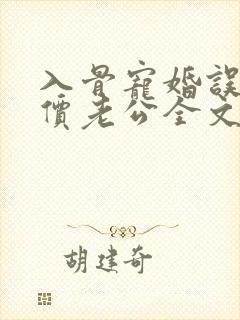 入骨寵婚誤
價老公全文
胡建奇